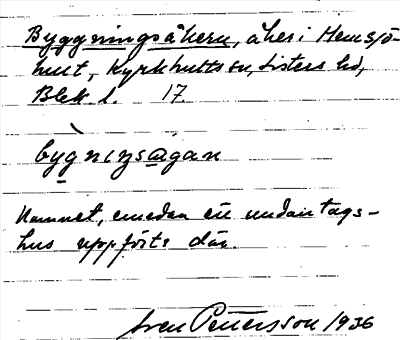 Byggningsåkern, åker i Hemsjö-
hult, Kyrkhults sn, Listers hd,
Blek. l. 17
bygnıŋsagan
Namnet, emedan ett undantags-
hus uppförts där.
Sven Pettersson 1936